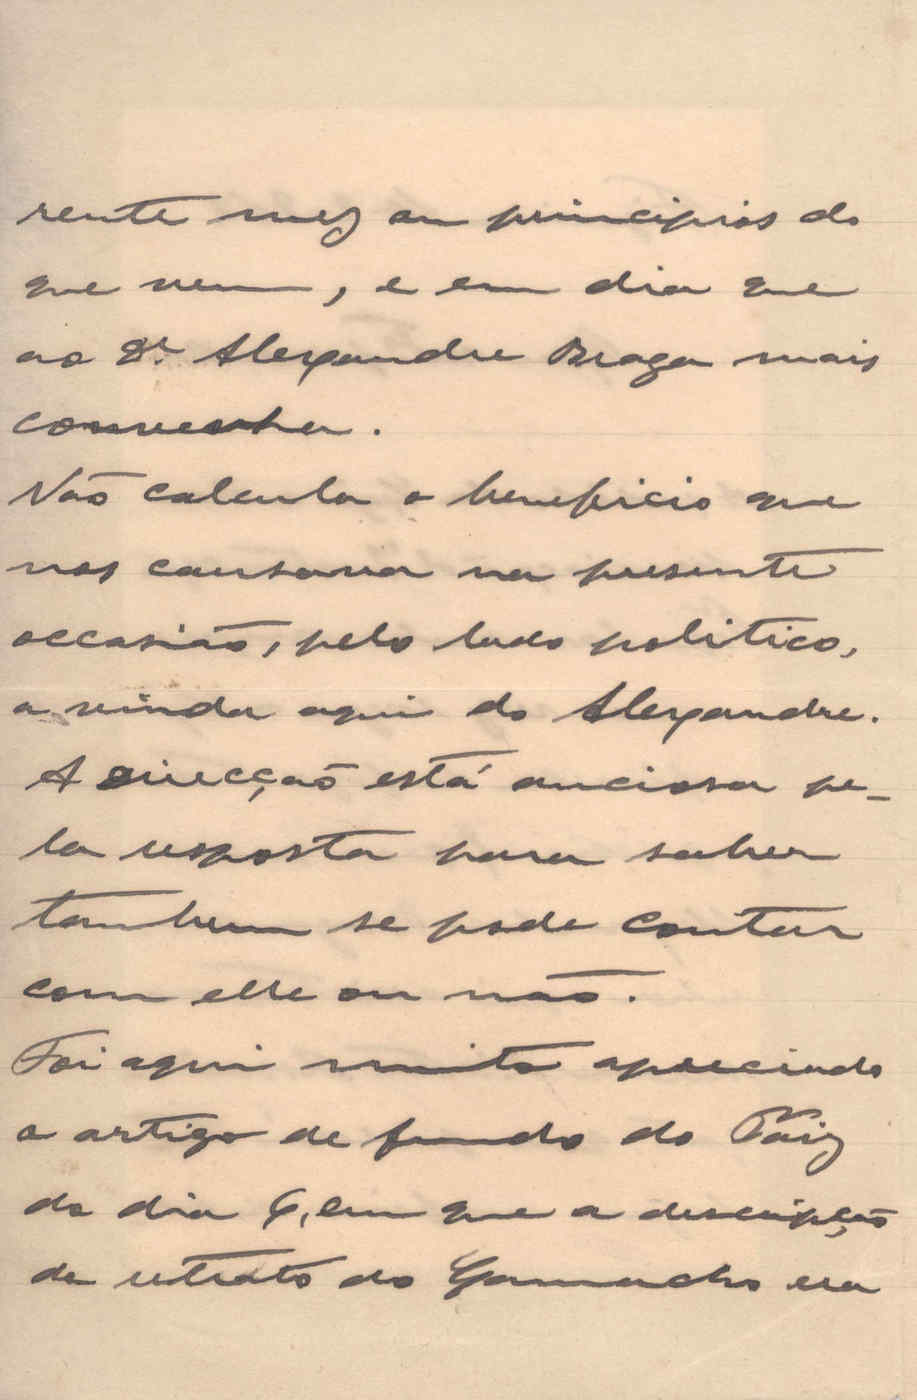 rente mez ou principios do
que vem, e em dia que
ao Dr. Alexandre Braga mais
convenha.
Não calcula o beneficio que
nos causava na presente
occasião, pelo lado politico,
a vinda aqui do Alexandre.
A direcção está anciosa pe-
la resposta para saber
tambem se pode contar
com elle ou não.
Foi aqui muito apreciado
o artigo de fundo do Paiz
do dia 6, em que a descripção
do retrato do Camacho era